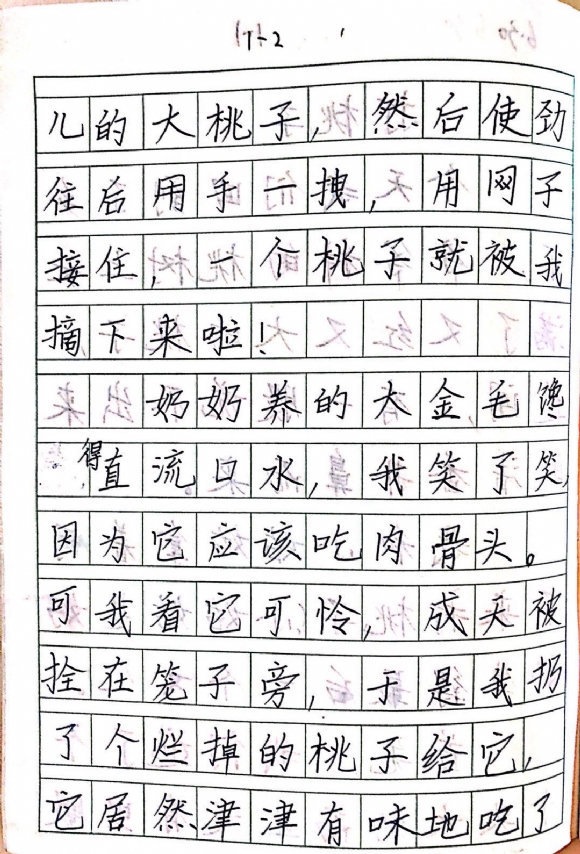 儿的大桃子,然后使劲
往后用手一拽,用网子
接住,一个桃子就被我
摘下来啦!
奶奶养的大金毛馋
得直流口水,我笑了笑,
因为它应该吃肉骨头。
可我看它可怜,成天被
拴在笼子旁,于是我扔
了个烂掉的桃子给它,
它居然津津有味地吃了